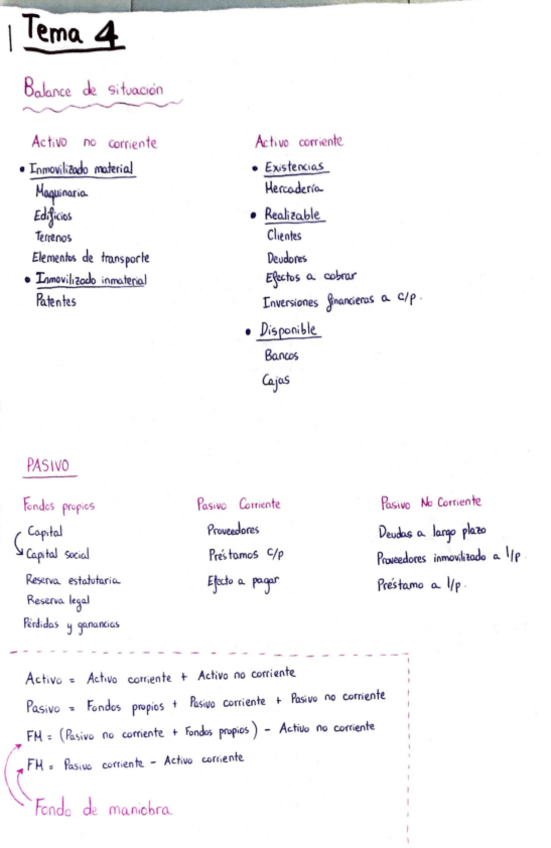 Tema 4
Balance de situación
Activo no corriente
• Inmovilizado material
Maquinaria
Edificios
Terrenos
Elementos de transporte
• Inmovilizado inmaterial
Patentes
Activo corriente
• Existencias
Mercadería
• Realizable
Clientes
Deudores
Efectos a cobrar
Inversiones financieras a c/p.
• Disponible
Bancos
Cajas
PASIVO
Fondos propios
Capital
Capital social
Reserva estatutaria
Reserva legal
Pérdidas y ganancias
Pasivo Corriente
Proveedores
Préstamos c/p
Efecto a pagar
Pasivo No Corriente
Deudas a largo plazo
Proveedores inmovilizado a l/p.
Préstamo a l/p.
Activo = Activo corriente + Activo no corriente
Pasivo = Fondos propios + Pasivo corriente + Pasivo no corriente
FM = (Pasivo no corriente + Fondos propios) - Activo no corriente
FM = Pasivo corriente - Activo corriente
Fondo de maniobra